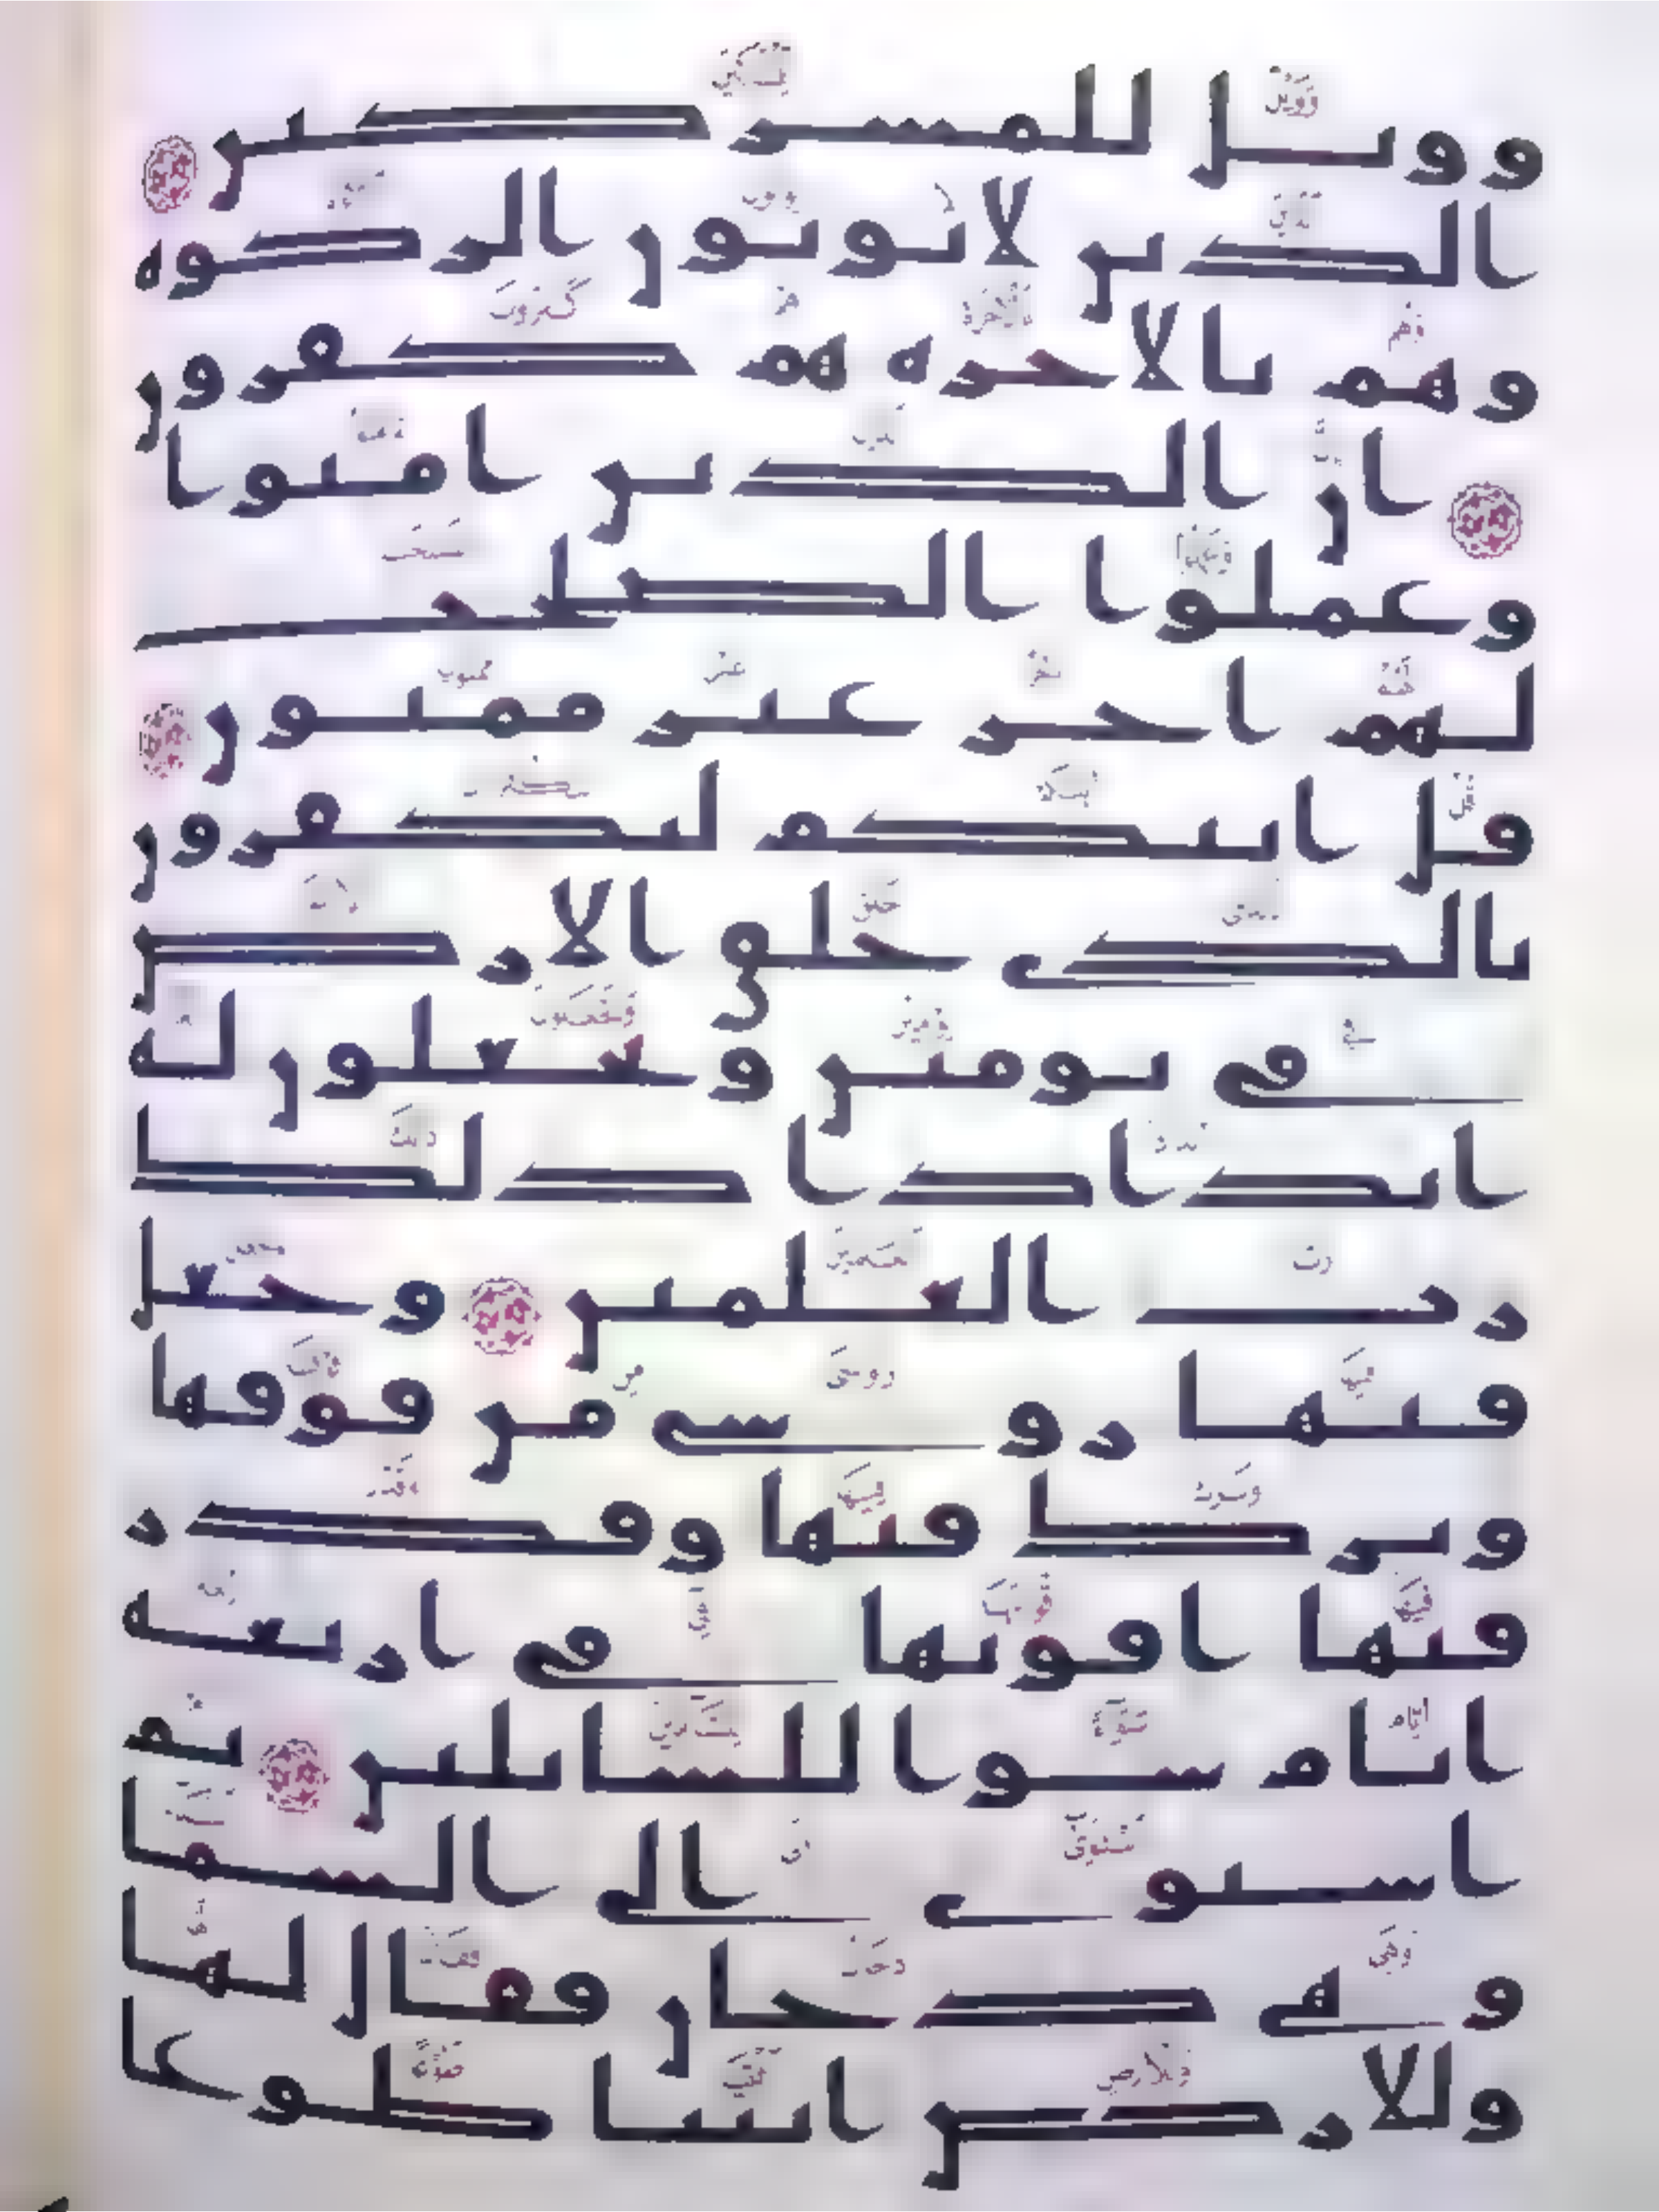 وويل للمشركين
الذين لا يوتون الزكوة
وهم بالاخرة هم كفرون
ان الذين امنوا
وعملوا الصلحت
لهم اجر غير ممنون
قل اينكم لتكفرون
بالذي خلق الارض
في يومين وتجعلون له
اندادا ذلك
رب العلمين وجعل
فيها روسي من فوقها
وبرك فيها وقدر
فيها اقوتها في اربعة
ايام سوا للسايلين ثم
استوى الى السما
وهي دخان فقال لها
وللارض ايتيا طوعا